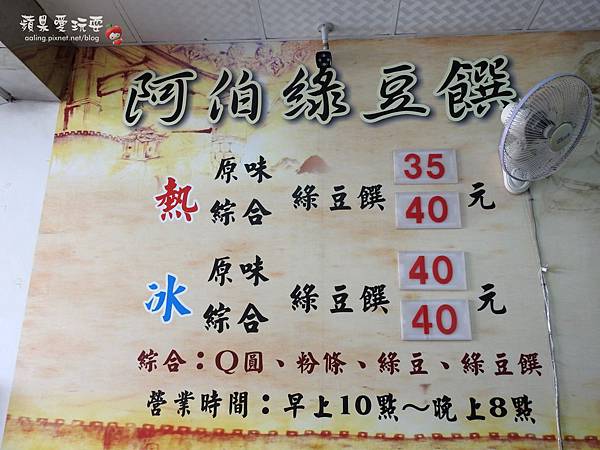 蘋果愛玩耍
aaling.pixnet.net/blog
阿伯綠豆饌
熱 原味 綠豆饌 35 元
綜合 40
冰 原味 綠豆饌 40 元
綜合 40
綜合：Q圓、粉條、綠豆、綠豆饌
營業時間：早上10點～晚上8點